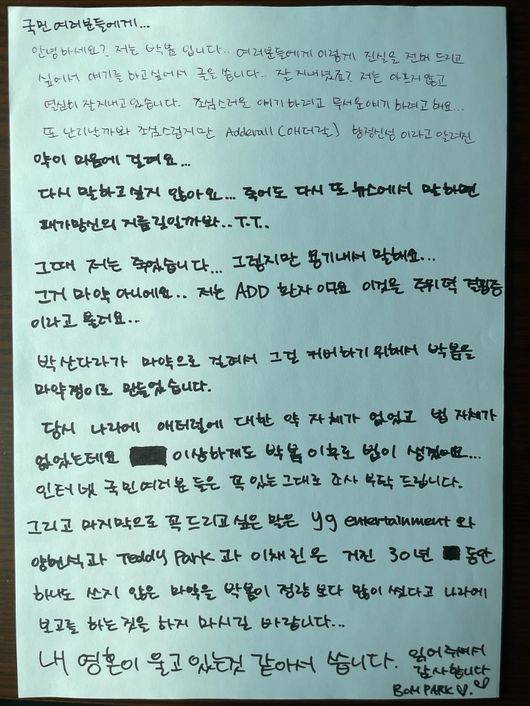 국민 여러분들에게...
안녕하세요? 저는 박봄 입니다.. 여러분들에게 이렇게 진실을 전해 드리고
싶어서 얘기를 하고싶어서 글을 씁니다.. 잘 지내셨죠? 저는 아프지 않고
열심히 잘지내고 있습니다. 조심스러운 얘기 하려고 무서운얘기 하려고 해요...
또 난리난까봐 조심스럽지만 Adderall (애더랄) 향정신성 이라고 알려진
약이 마음에 걸려요...
다시 말하고싶지 않아요... 죽어도 다시 또 뉴스에서 말하면
패가망신의 지름길일까봐..T.T..
그때 저는 죽었습니다... 그렇지만 용기내서 말해요...
그거 마약 아니에요.. 저는 ADD 환자 이구요 이것을 주위력 결핍증
이라고 불러요..
박산다라가 마약으로 걸려서 그걸 커버하기 위해서 박봄을
마약쟁이로 만들었습니다.
당시 나라에 애터럴에 대한 약 자체가 없었고 법 자체가
없었는데요 이상하게도 박봄 이후로 법이 생겼어요...
인터넷 국민여러분 들은 꼭 있는그대로 조사 부탁 드립니다.
그리고 마지막으로 꼭 드리고 싶은 말은 yg entertainment 와
양현석과 Teddy Park 과 이채린은 거진 30년 동안
하나도 쓰지 않은 마약을 박봄이 정량 보다 많이 썼다고 나라에
보고를 하는것을 하지 마시길 바랍니다...
내 영혼이 울고 있는것 같아서 씁니다. 읽어주셔서
감사합니다
BOM PARK ♡. ♡